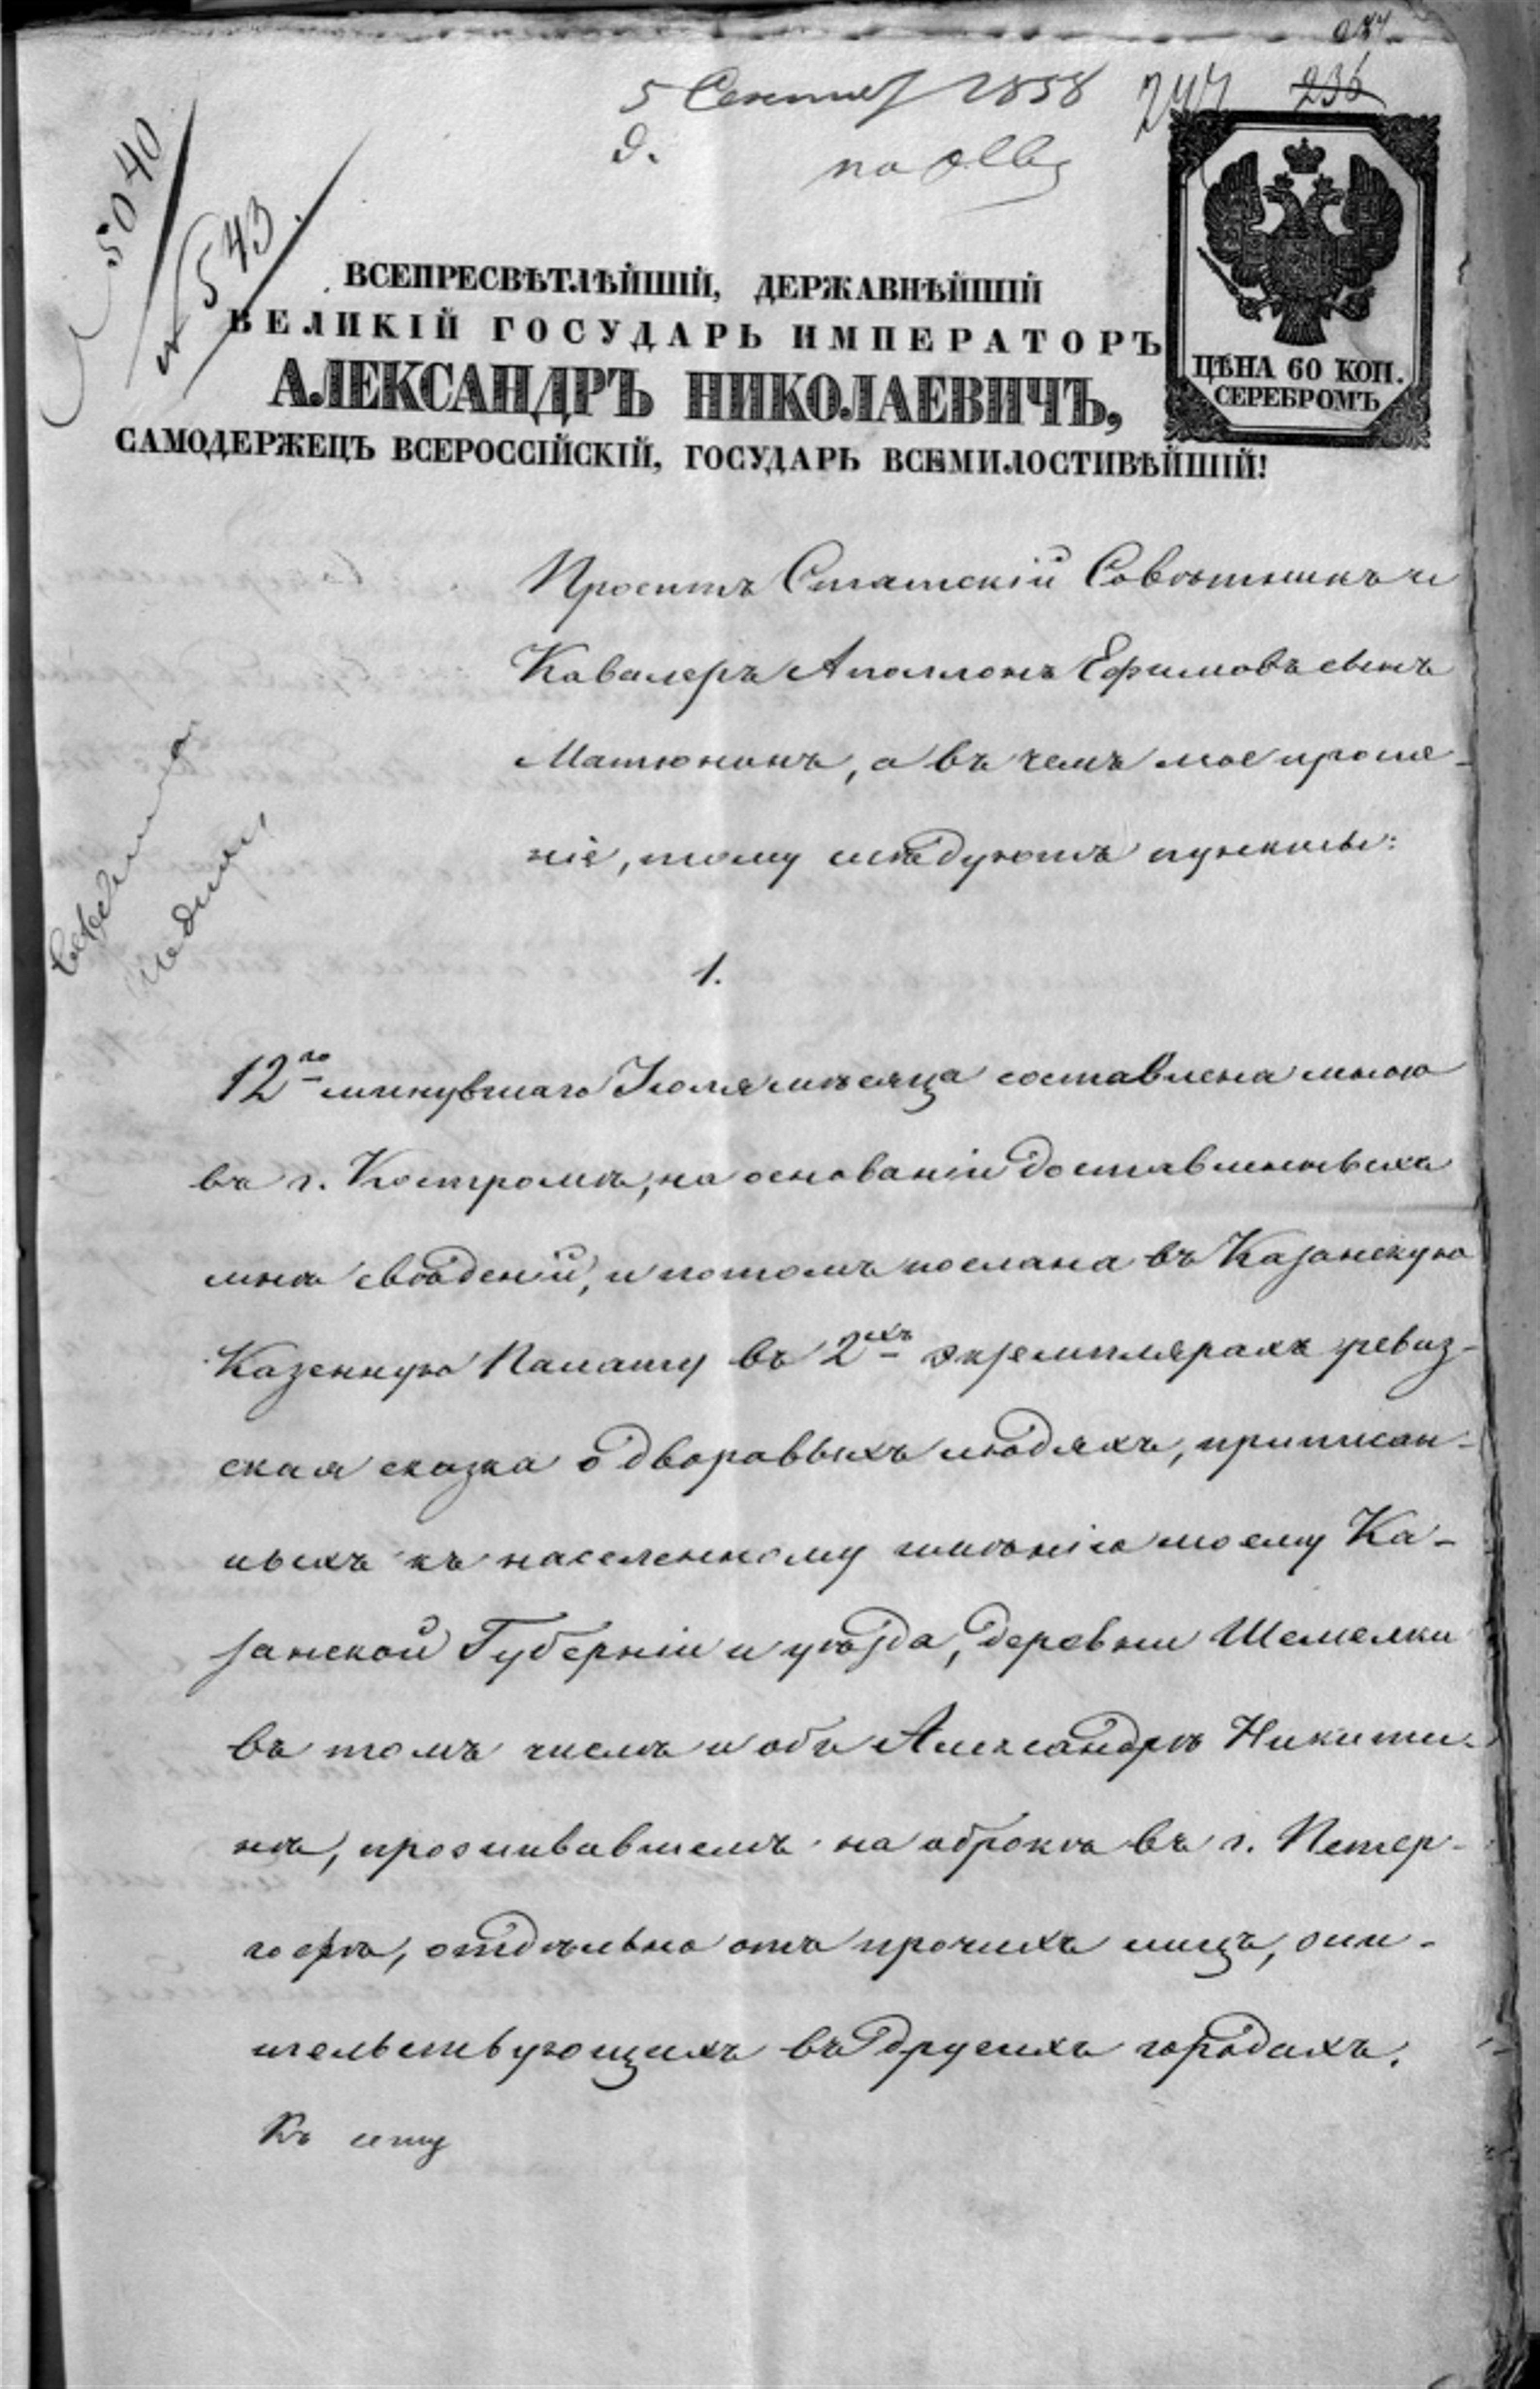 5 Сентяб 1858
247
236
д.
5040
№ 543
ВСЕПРЕСВѢТЛѢЙШІЙ, ДЕРЖАВНѢЙШІЙ
ВЕЛИКІЙ ГОСУДАРЬ ИМПЕРАТОРЪ
АЛЕКСАНДРЪ НИКОЛАЕВИЧЪ,
САМОДЕРЖЕЦЪ ВСЕРОССІЙСКІЙ, ГОСУДАРЬ ВСЕМИЛОСТИВѢЙШІЙ!
ЦѢНА 60 КОП.
СЕРЕБРОМЪ
Проситъ Статскій Совѣтникъ и
Кавалеръ Аполлонъ Ефимовъ сынъ
Матюнинъ, а въ чемъ мое проше-
ніе, тому слѣдуютъ пункты:
1.
12го минувшаго Іюля мѣсяца составлена мною
въ г. Костромѣ, на основаніи доставленныхъ
мнѣ свѣденій, и потомъ послана въ Казанскую
Казенную Палату въ 2хъ экземплярахъ ревиз-
ская сказка о дворовыхъ людяхъ, приписан-
ныхъ къ населенному имѣнію моему Ка-
занской Губерніи и уѣзда, деревни Шемелки
въ томъ числѣ и объ Александрѣ Никити-
нѣ, проживавшемъ на оброкѣ въ г. Петер-
гофѣ, отдѣльно отъ прочихъ лицъ, жи-
тельствующихъ въ другихъ городахъ.
Къ сему